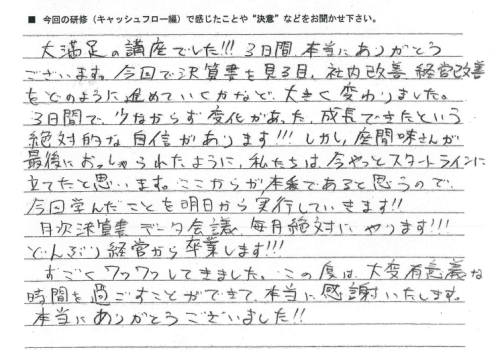 ■ 今回の研修（キャッシュフロー編）で感じたことや“決意”などをお聞かせ下さい。
大満足の講座でした!!! 3日間、本当にありがとう
ございます。今回で決算書を見る目、社内改善、経営改善
をどのように進めていくかなど、大きく変わりました。
3日間で、少なからず変化があった、成長できたという
絶対的な自信があります!!! しかし、座間味さんが
最後におっしゃられたように、私たちは今やっとスタートラインに
立てたと思います。ここからが本番であると思うので、
今回学んだことを明日から実行していきます!!
月次決算書データ会議、毎月絶対にやります!!!
どんぶり経営から卒業します!!!
すごくワクワクしてきました。この度は、大変有意義な
時間を過ごすことができて、本当に感謝いたします。
本当にありがとうございました!!